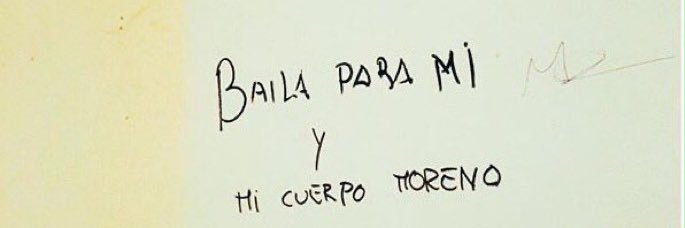 BAILA PARA MI
Y
MI CUERPO MORENO